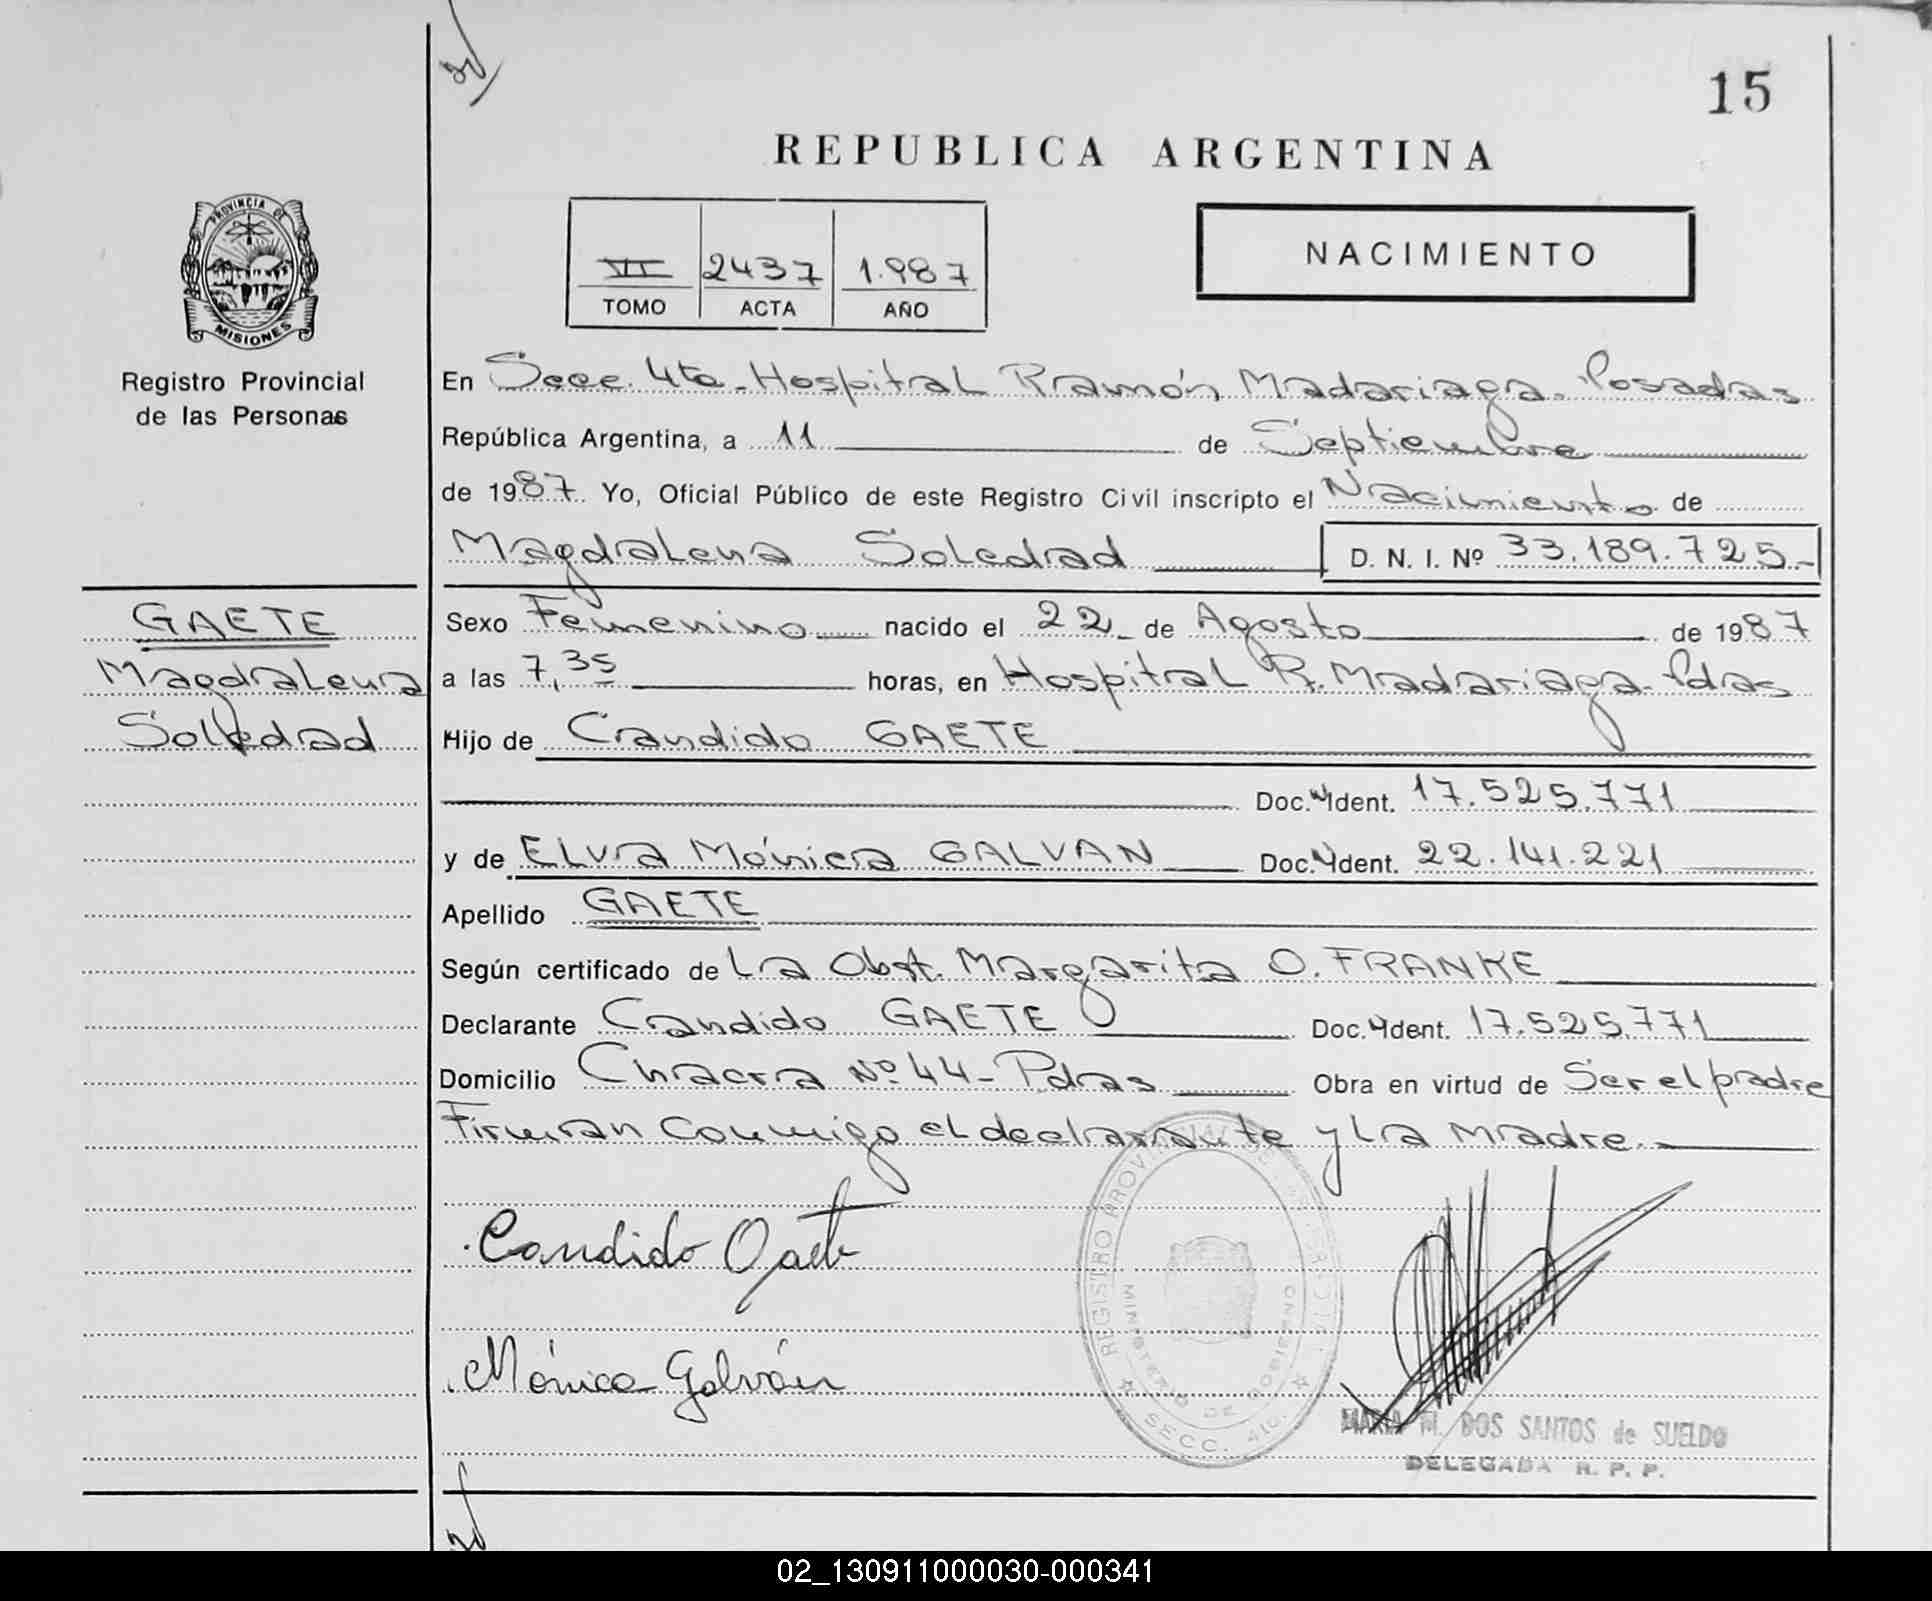 15
REPUBLICA ARGENTINA
PROVINCIA DE
MISIONES
Registro Provincial
de las Personas
VII 2437 1.987
TOMO ACTA AÑO
NACIMIENTO
En Secc. 4ta. Hospital Ramón Madariaga. Posadas
República Argentina, a 11 de Septiembre
de 1987. Yo, Oficial Público de este Registro Civil inscripto el Nacimiento de
Magdalena Soledad D. N. I. Nº 33.189.725.-
GAETE
Magdalena
Soledad
Sexo Femenino nacido el 22 de Agosto de 1987
a las 7,35 horas, en Hospital R. Madariaga. Pdas
Hijo de Candido GAETE
Doc. Ident. 17.525.771
y de ELva Mónica GALVAN Doc. Ident. 22.141.221
Apellido GAETE
Según certificado de La Obst. Margarita O. FRANKE
Declarante Candido GAETE Doc. Ident. 17.525.771
Domicilio Chacra Nº 44 - Pdas Obra en virtud de Ser el padre
Firman conmigo el declarante y La Madre.
Candido Gaete
Mónica Galván
REGISTRO PROVINCIAL DE LAS PERSONAS
MINISTERIO DE GOBIERNO
SECC. 4ta.
MARIA M. DOS SANTOS de SUELDO
DELEGADA R. P. P.
02_130911000030-000341